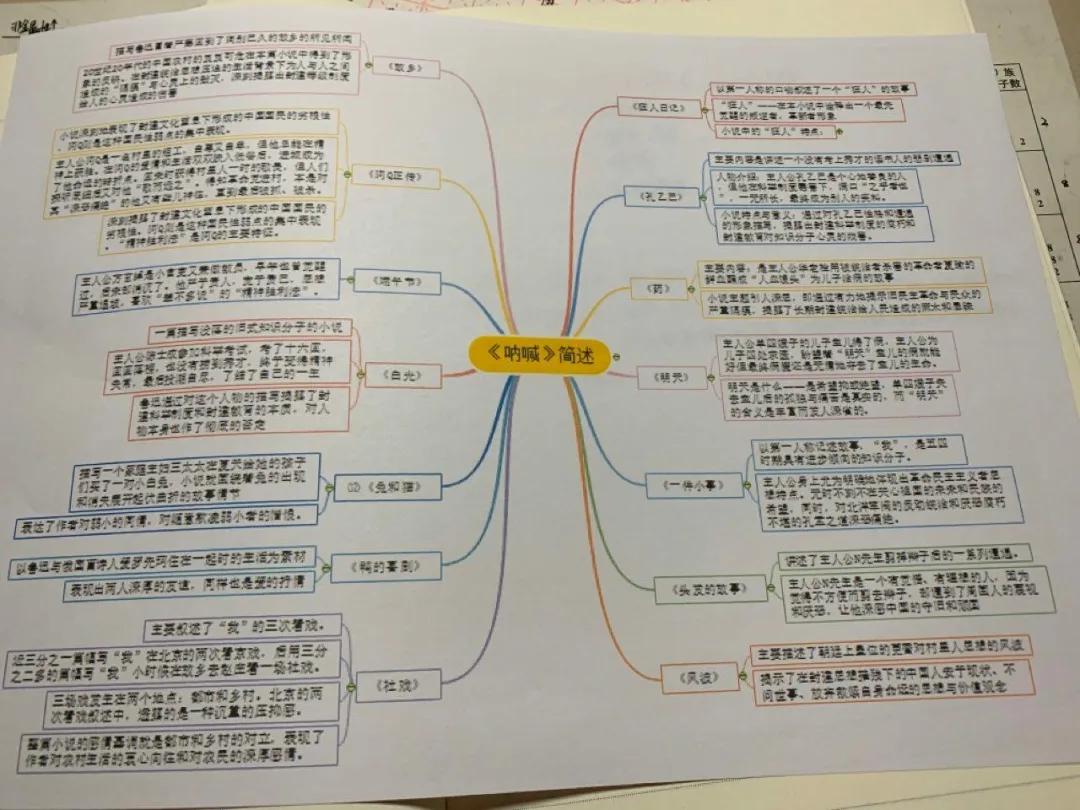 《呐喊》简述
《狂人日记》
以第一人称的口吻叙述了一个“狂人”的故事
“狂人”——在本小说中诠释出一个最先
觉醒的叛逆者，革新者形象
小说中的“狂人”特点：
《孔乙己》
主要内容是讲述一个没有考上秀才的读书人的悲剧遭遇
人物介绍：主人公孔乙己是个心地善良的人
，但他在科举制度毒害下，满口“之乎者也
”，一无所长，最终成为别人的笑料。
小说特点与意义：通过对孔乙己性格和遭遇
的形象描写，揭露出封建科举制度的腐朽和
封建教育对知识分子心灵的戕害。
《药》
主要内容：是主人公华老栓用被统治者杀害的革命者夏瑜的
鲜血蘸成“人血馒头”为儿子治病的故事
小说主题引人深思，却通过有力地揭示旧民主革命与民众的
严重隔膜，揭露了长期封建统治给人民造成的麻木和愚昧
《明天》
主人公单四嫂子的儿子宝儿得了病，主人公为
儿子四处求医，盼望着“明天”宝儿的病就能
好但最终病魔还是无情地夺去了宝儿的生命。
明天是什么——是希望抑或绝望，单四嫂子失
去宝儿后的孤独与痛苦是真实的，而“明天”
的含义是丰富而发人深省的。
《一件小事》
以第一人称记述故事，“我”，是五四
时期具有进步倾向的知识分子。
主人公身上尤为明确地体现出革命民主主义者思
想特点。无时不刻不在关心祖国的未来和民族的
希望，同时，对北洋军阀的反动统治和厌恶腐朽
不堪的孔孟之道深恶痛绝。
《头发的故事》
讲述了主人公N先生剪掉辫子后的一系列遭遇。
主人公N先生是一个有觉悟、有理想的人，因为
觉得不方便而剪去辫子，却遭到了周围人的蔑视
和厌恶，让他深感中国的守旧和顽固
《风波》
主要描述了朝廷上皇位的更替对村里人思想的风波
揭示了在封建思想摧残下的中国人安于现状、不
问世事、放弃鼓吸自身命运的思想与价值观念
《故乡》
描写鲁迅冒着严寒回到了阔别已久的故乡的所见所闻
20世纪20年代的中国农村的岌岌可危在本篇小说中得到了形
象的反映。在封建统治思想压迫的生活背景下为人与人之间
造成的“隔膜”与心灵上的鼓灭，深刻揭露出封建等级制度
给人的心灵造成的伤害
《阿Q正传》
小说深刻地表现了封建文化窒息下形成的中国国民的劣根性
，阿Q则是这种国民性弱点的集中表现。
主人公阿Q是一名村里的短工，自尊又自卑，但他总能在精
神上获胜。
深刻揭露了封建文化窒息下形成的中国国民的
劣根性。阿Q则是这种国民性弱点的集中表现
。“精神胜利法”是阿Q的主要特征。
《端午节》
主人公方玄绰是小官吏又兼做教员，早年也曾觉醒
过，后来却消沉了。他严于责人，宽于责己，思想
严重退坡，喜欢“差不多说”的“精神胜利法”。
《白光》
一篇描写没落的旧式知识分子的小说
主人公陈士成参加科举考试，考了十六回，
回回落榜，也没有捞到秀才，终于受得精神
失常，最后投湖自尽，了结了自己的一生
鲁迅通过对这个人物的描写揭露了封
建科举制度和封建教育的本质，对人
物本身也作了彻底的否定
《兔和猫》
描写一个家庭主妇三太太在夏天给她的孩子
们买了一对小白兔，小说就围绕着兔的出现
和消失展开起伏曲折的故事情节
表达了作者对弱小的同情，对肆意欺凌弱小者的憎恨。
《鸭的喜剧》
以鲁迅与俄国盲诗人爱罗先珂住在一起时的生活为素材
表现出两人深厚的友谊，同样也是爱的抒情
《社戏》
主要叙述了“我”的三次看戏。
近三分之一篇幅写“我”在北京的两次看京戏，后用三分
之二多的篇幅写“我”小时候在故乡去赵庄看一场社戏。
三场戏发生在两个地点：都市和乡村。北京的两
次看戏叙述中，透露的是一种沉重的压抑感。
整篇小说的感情基调就是都市和乡村的对立，表现了
作者对农村生活的衷心向往和对农民的深厚感情。